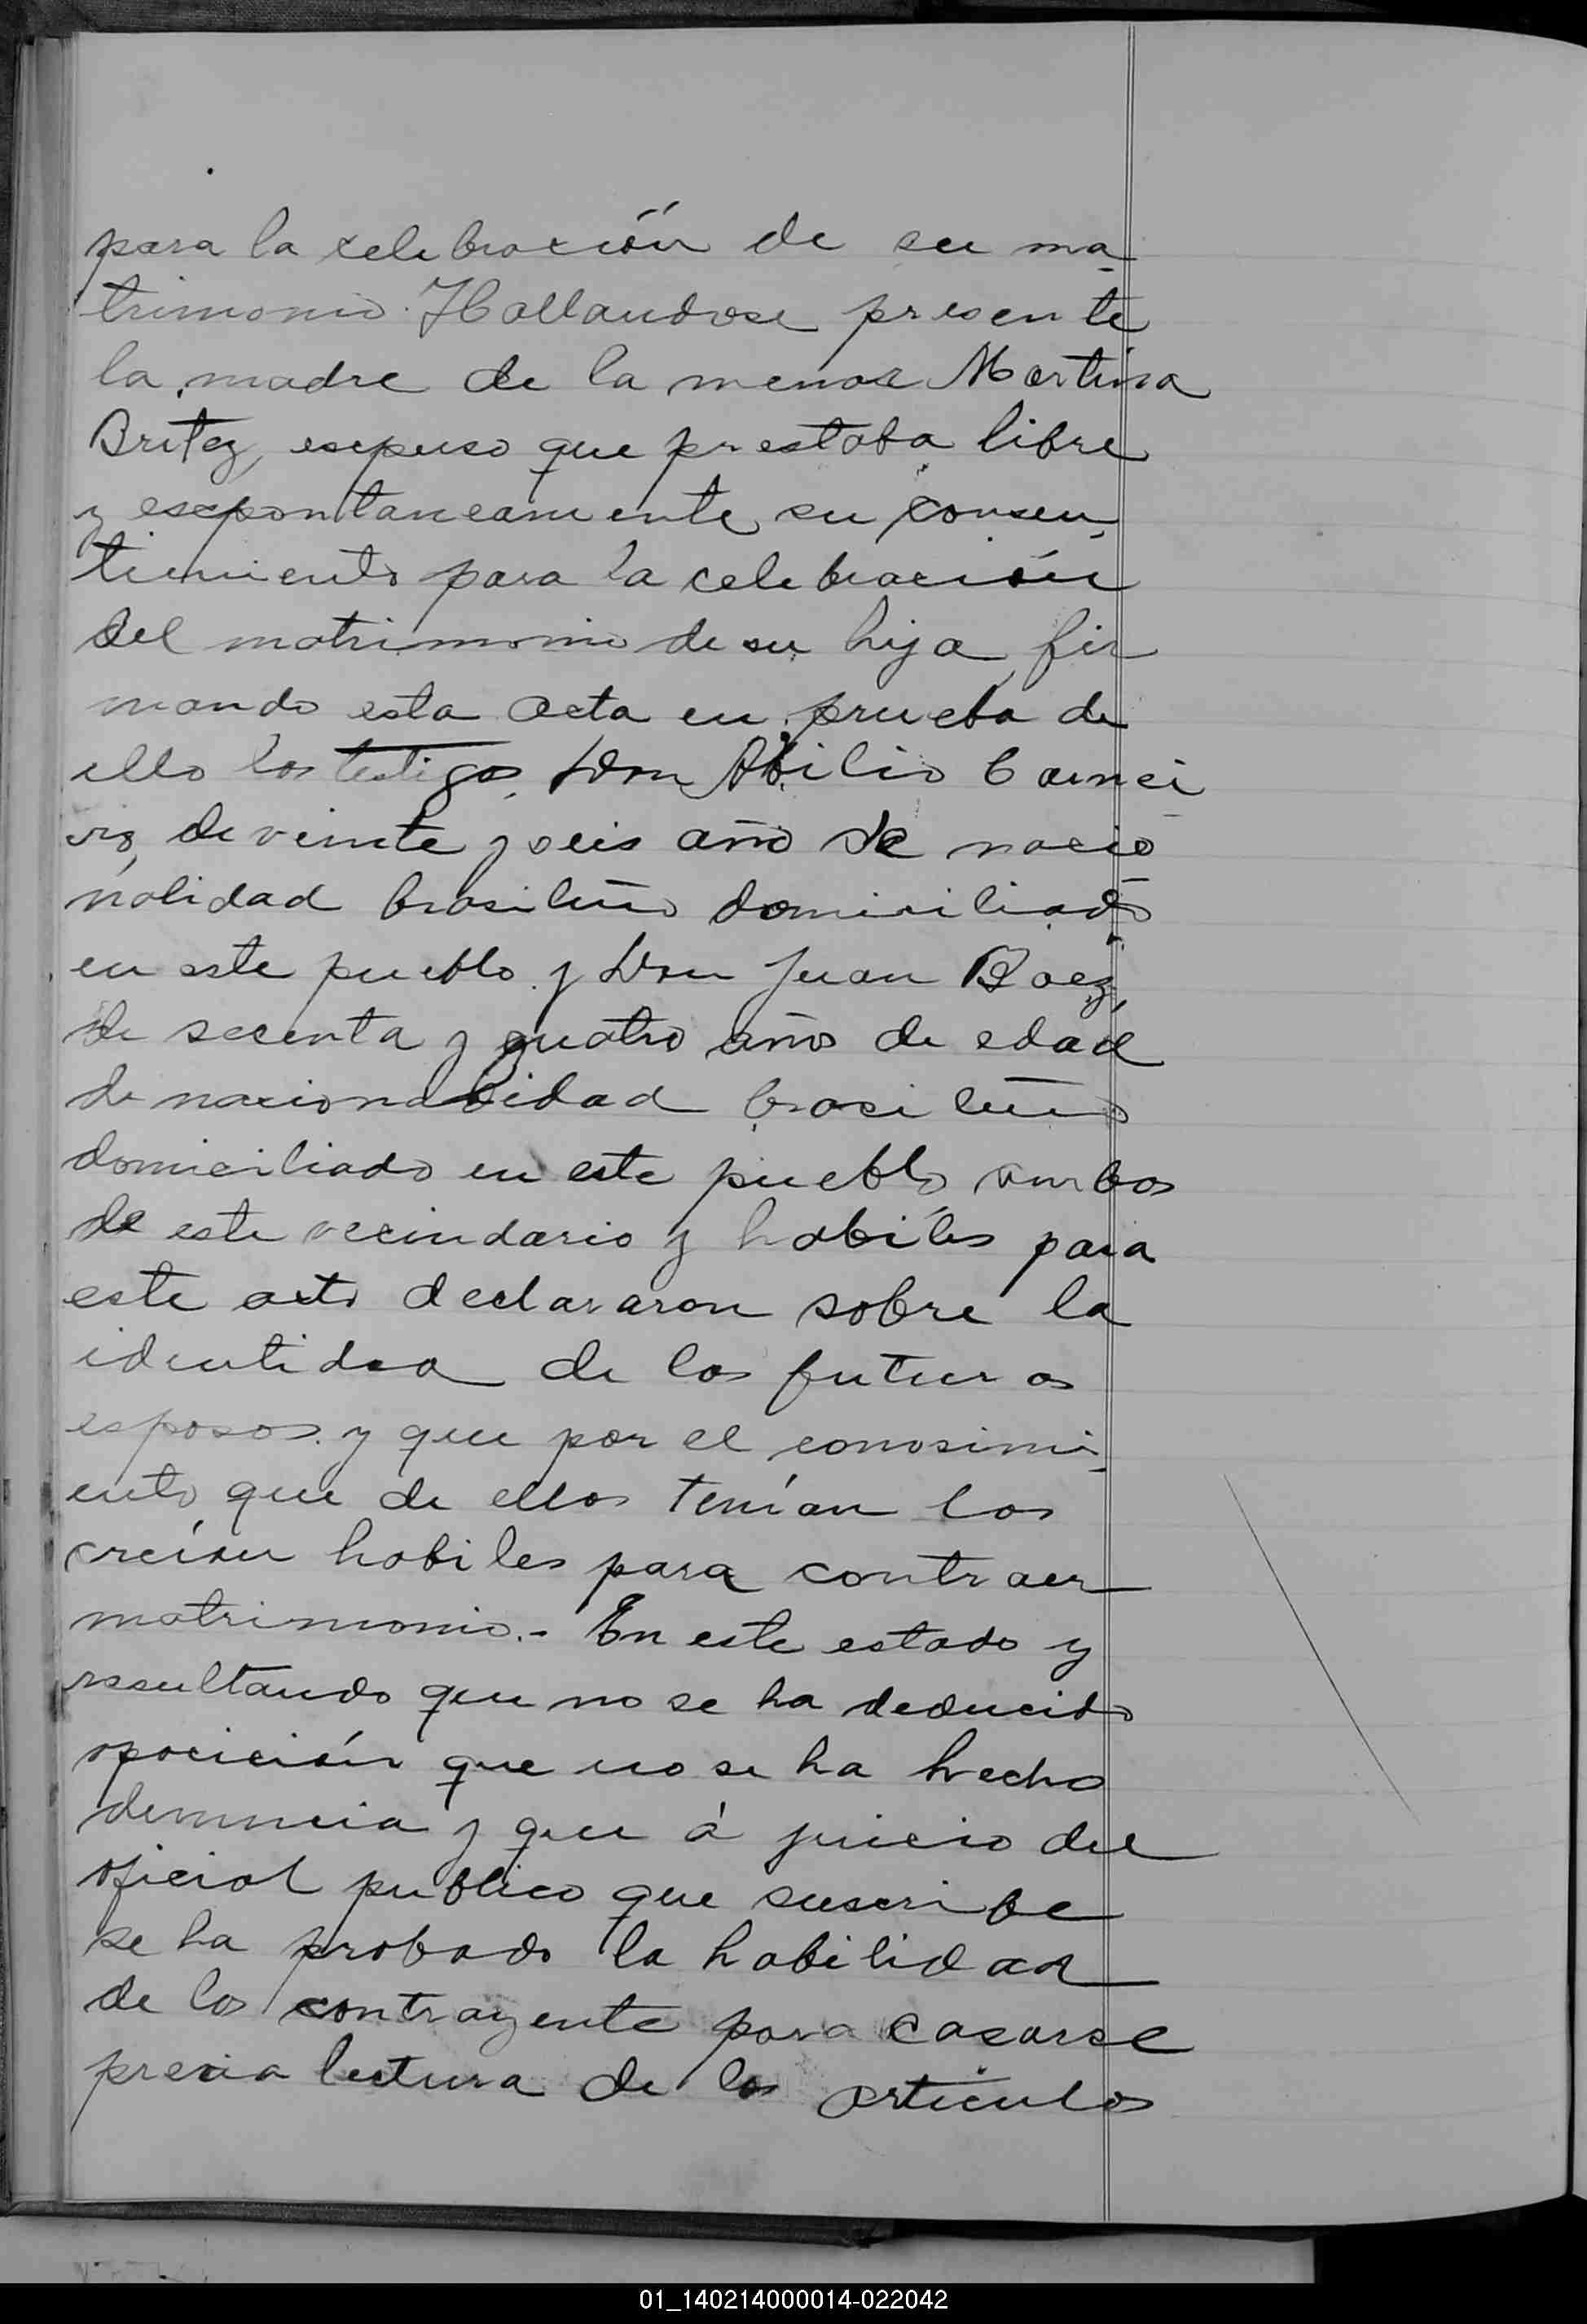 para la celebración de su ma-
trimonio. Hallandose presente
la madre de la menor Martina
Britez, esepuso que prestaba libre
y esepontaneamente su consen-
timiento para la celebración
del matrimonio de su hija, fir
mando esta acta en prueba de
ello los testigos, Don Abilio Carnei-
ro, de veinte y seis año de nacio
nalidad brasileño domiciliado
en este pueblo y Don Juan Baez,
de secenta y cuatro años de edad
de nacionalidad brasileño
domiciliado en este pueblo, ambos
de este vecindario y habiles para
este acto declararon sobre la
identidad de los futuros
esposos y que por el conosimi-
ento que de ellos tenían los
creían habiles para contraer
matrimonio.- En este estado y
resultando que no se ha deducido
oposición que no se ha hecho
denuncia y que á juicio del
oficial publico que suscribe
se ha probado la habilidad
de los contrayente para casarse
previa lectura de los articulos
01_140214000014-022042